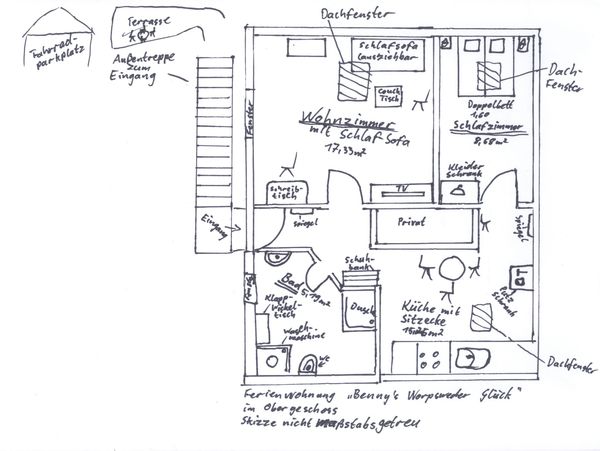 Dachfenster
Fahrrad-
parkplatz
Terrasse
Außentreppe
zum
Eingang
Schlafsofa
(ausziehbar)
Couch
Tisch
Dach-
Fenster
Fenster
Wohnzimmer
mit Schlafsofa
17,33m²
Doppelbett
1,60
Schlafzimmer
8,68m²
Kleider
Schrank
Schreib-
tisch
TV
Eingang
Spiegel
Privat
Spiegel
Schuh-
bank
Bad
5,19m²
Putz
Schrank
Klapp-
wickel-
tisch
Dusche
Küche mit
Sitzecke
Wasch-
maschine
WC
Dachfenster
Ferienwohnung „Benny's Worpsweder Glück"
im Obergeschoss
Skizze nicht maßstabsgetreu